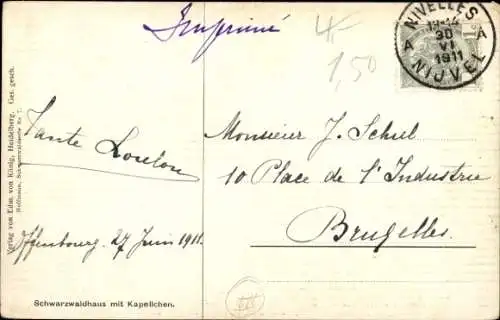 Imprimé
4-
1,50
NIVELLES
A 30 A
VI
1911
NIJVEL
Verlag von Edm. von König, Heidelberg. Ges. gesch.
Tante Loulou
Offenbourg 27 Juin 1911.
Monsieur J. Schul
10 Place de l'Industrie
Bruxelles.
Schwarzwaldhaus mit Kapellchen.